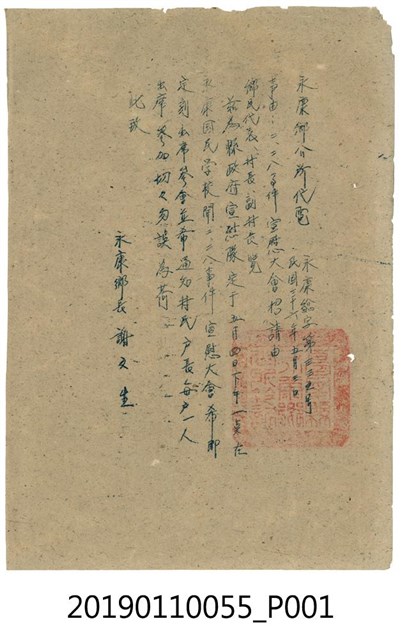 永康鄉公所代電
永康總字第三三五號
民國三十六年五月三日
事由：二、二八事件宣慰大會相請由
鄉民代表、村長、副村長覽
茲為縣政府宣慰隊定于五月四日下午一点在
永康國民學校開二、二八事件宣慰大會希即
定刻出席參會並希通知村民戶長每戶一人
出席參加切々勿誤為荷
此致
永康鄉長 謝文生
20190110055_P001